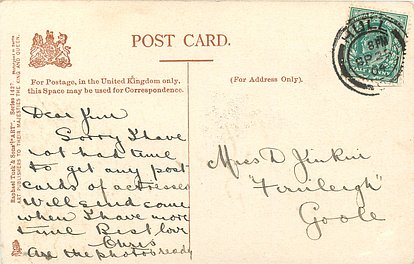 POST CARD.
For Postage, in the United Kingdom only,
this Space may be used for Correspondence.
(For Address Only).
HULL
8 PM
05
Raphael Tuck & Sons' "ART" Series 1427
ART PUBLISHERS TO THEIR MAJESTIES THE KING AND QUEEN.
Dear
Sorry I have
not had time
to get any post
cards of actresses
will send some
when I have more
time Best love
Chris
are the photos ready
Miss D Jinkin
"Fernleigh"
Goole